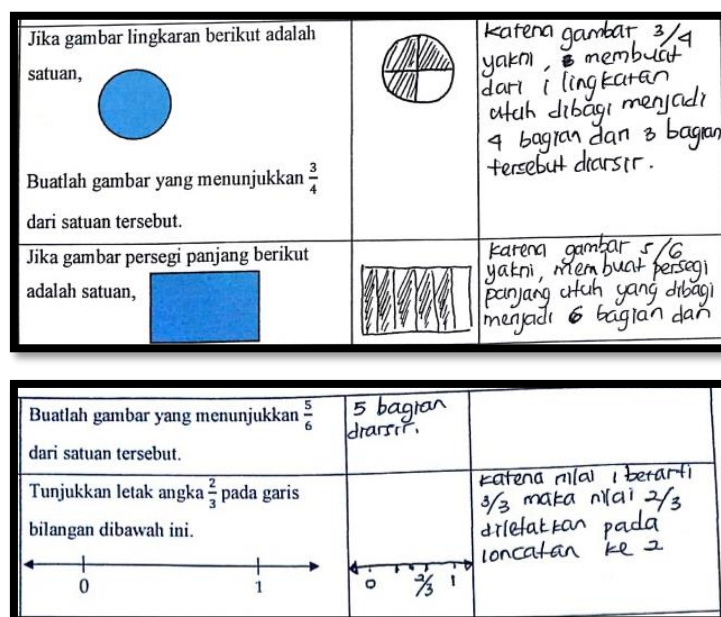 Jika gambar lingkaran berikut adalah
satuan,
Buatlah gambar yang menunjukkan 3/4
dari satuan tersebut.
karena gambar 3/4
yakni, membuat
dari 1 lingkaran
utuh dibagi menjadi
4 bagian dan 3 bagian
tersebut diarsir.
Jika gambar persegi panjang berikut
adalah satuan,
karena gambar 5/6
yakni, membuat persegi
panjang utuh yang dibagi
menjadi 6 bagian dan
Buatlah gambar yang menunjukkan 5/6
dari satuan tersebut.
5 bagian
diarsir.
Tunjukkan letak angka 2/3 pada garis
bilangan dibawah ini.
0 1
0 2/3 1
karena nilai 1 berarti
3/3 maka nilai 2/3
diletakkan pada
loncatan ke 2